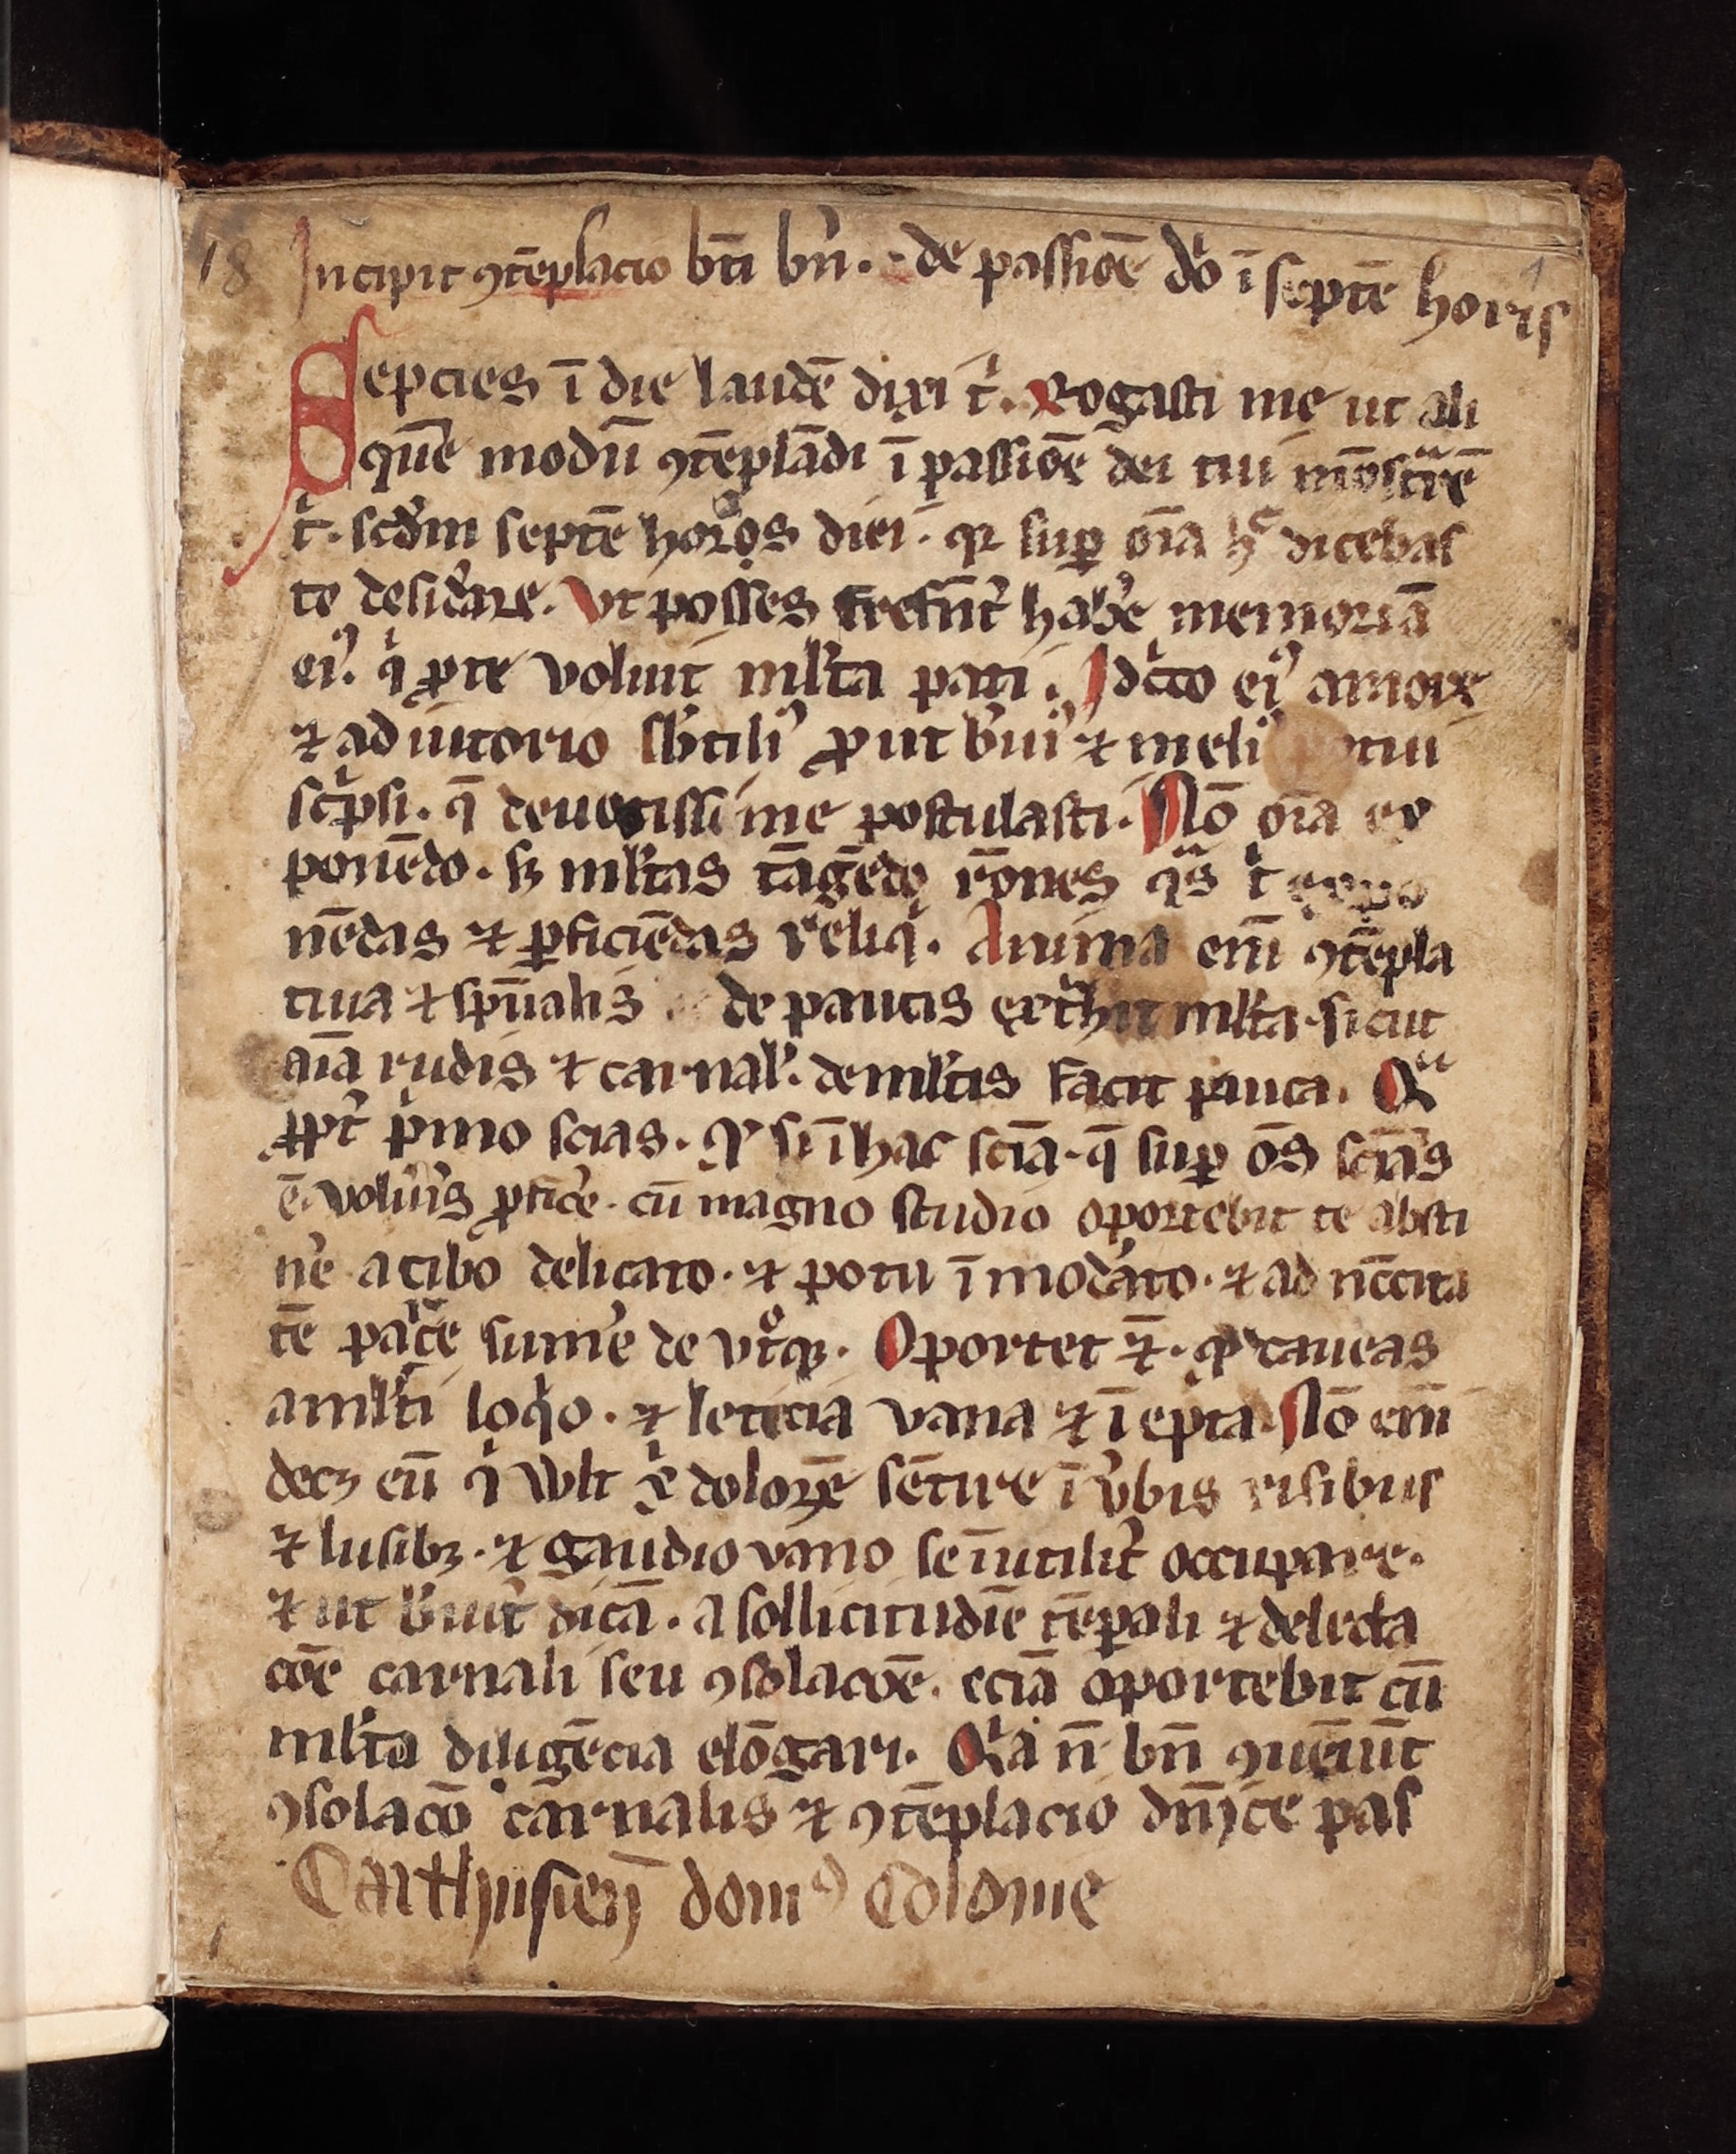 18 Incipit ꝯtēplacio bti bn̄. de passiōe do ī septē horis 1
Sepcies ī die laudē dixi t̉. Rogasti me ut ali
quē modū ꝯtēplādi ī passiōe dei tui mōstrarē
t̉. scdm septē horas diei. qꝛ suꝑ oīa hͨ dicebas
te desid̉are. Vt posses hab̉e memoriā
eiꝰ. qͥ ꝓ te voluit ml̉ta pati. Idc̉co eiꝰ amore
⁊ adiutorio sb̉tiliꝰ ꝓut b̉uiꝰ ⁊ meliꝰ potui
sc̉psi. qd̄ deuotissime postulasti. Nō oīa ex
ponēdo. sꝫ ml̉tas tāgēdo rōnes qᵃs t̉ expo
nēdas ⁊ ꝑficiēdas reliqͥ. Anima eni̅ ꝯtēpla
tiua ⁊ sp̄ualis de paucis ext̉hit ml̉ta. sicut
aīa rudis ⁊ carnal̉. de ml̉tis facit pauca. Qᵃ
ꝓpt̉ pͥmo scias. ꝙ si ī hac sciā. q̄ suꝑ ōs sciās
ē. volủis ꝓfic̉e. cū magno studio oportebit te absti
n̉e a cibo delicato. ⁊ potu īmod̉ato. ⁊ ad nēcita
tē parcē sum̉e de vtͦqꝫ. Oportet ⁊̄. ꝙ caueas
a ml̉ti loqͥo. ⁊ leticia vana ⁊ īepta. Nō eni̅
decꝫ eū qͥ vult x̉ dolorē sētire ī v̉bis risibus
⁊ lusibꝫ. ⁊ gaudio vano se īutilit̉ occupare.
⁊ ut b̉uit̉ dicā. a sollicitudīe tēꝑali ⁊ delecta
cōe carnali seu ꝯsolacōe. eciā oportebit cū
ml̉ta diligēcia elōgari. Qͥa n̄ bn̄ ꝯueīut
ꝯsolacō carnalis ⁊ ꝯtēplacio dn̄ice pas
Carthusien̄ domꝰ Colonie
1